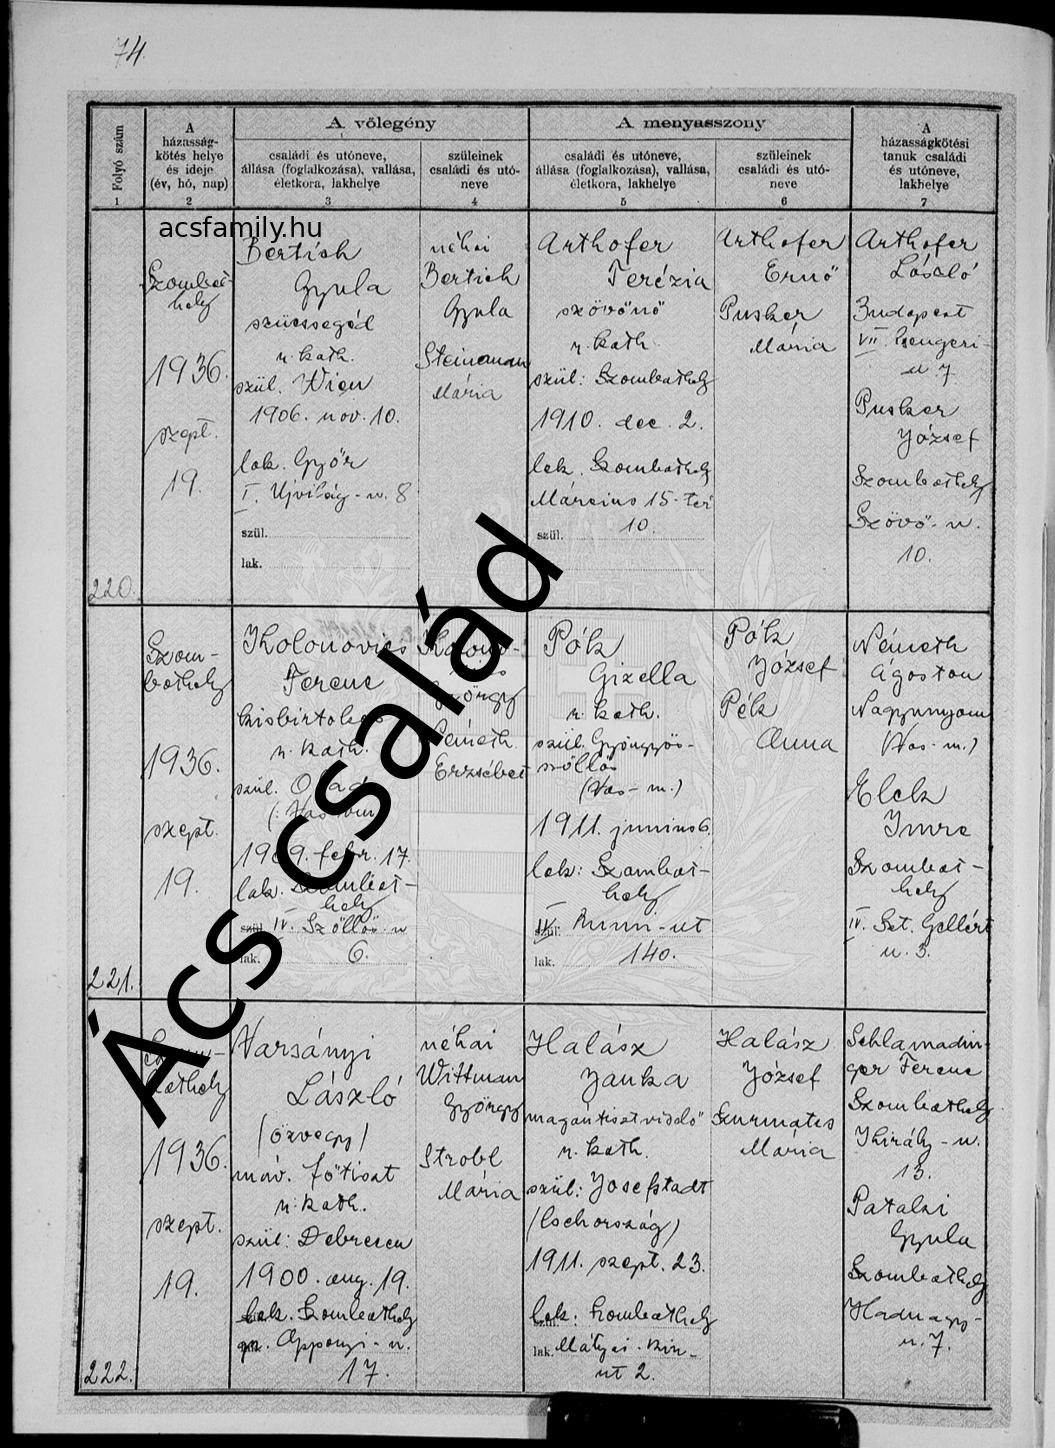 74.
Folyó szám
A
házasság-
kötés helye
és ideje
(év, hó, nap)
A vőlegény
családi és utóneve,
állása (foglalkozása), vallása,
életkora, lakhelye
szüleinek
családi és utó-
neve
A menyasszony
családi és utóneve,
állása (foglalkozása), vallása,
életkora, lakhelye
szüleinek
családi és utó-
neve
A
házasságkötési
tanuk családi
és utóneve,
lakhelye
1
2
3
4
5
6
7
acsfamily.hu
220.
Szombat-
hely
1936.
szept.
19.
Bertich
Gyula
szücssegéd
r. kath.
szül. Wien
1906. nov. 10.
lak. Győr
I. Ujvilág-u. 8
szül.
lak.
néhai
Bertich
Gyula
Steinemann
Mária
Arthofer
Terézia
szövőnő
r. kath.
szül: Szombathely
1910. dec. 2.
lak. Szombathely
Március 15-tér
10.
szül.
Arthofer
Ernő
Pusker
Mária
Arthofer
László
Budapest
VII. Csengeri-
u. 7
Pusker
József
Szombathely
Szövő-u.
10.
221.
Szom-
bathely
1936.
szept.
19.
Kolonovics
Ferenc
kisbirtokos
r. kath.
szül. Olad
(: Vas vm
1909. febr. 17.
lak. Szombat-
hely
szül. IV. Szöllős-u
lak. 6.
György
Németh
Erzsébet
Pók
Gizella
r. kath.
szül. Gyöngyös-
szöllős
(Vas-m.)
1911. junius 6.
lak: Szombat-
hely
szül. IV. Rumi-ut
lak. 140.
Pók
József
Pék
Anna
Németh
Ágoston
Nagyunyom
(Vas-m.)
Elek
Imre
Szombat-
hely
IV. Szt. Gellért
u. 3.
222.
Szom-
bathely
1936.
szept.
19.
Varsányi
László
(özvegy)
máv. főtiszt
r. kath.
szül: Debrecen
1900. aug. 19.
lak. Szombathely
gr. Apponyi-u.
17.
néhai
Wittman
György
Strobl
Mária
Halász
Janka
magántisztviselő
r. kath.
szül: Josefstadt
(Csehország)
1911. szept. 23.
szül. lak: Szombathely
lak. Mátyás-kir-
ut 2.
Halász
József
Szurmatis
Mária
Schlamadin-
ger Ferenc
Szombathely
Király-u.
13.
Pataki
Gyula
Szombathely
Hadnagy-
u. 7.
Ács család